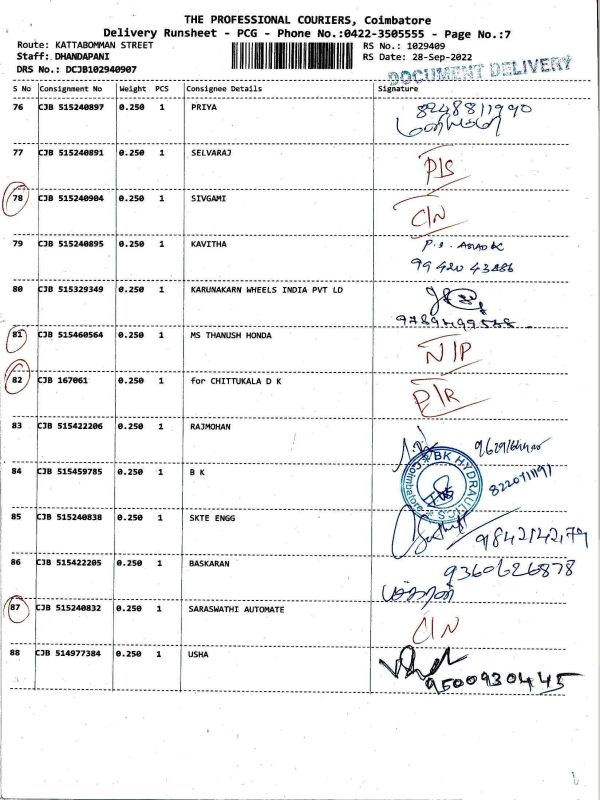 THE PROFESSIONAL COURIERS, Coimbatore
Delivery Runsheet - PCG - Phone No.:0422-3505555 - Page No.:7
Route: KATTABOMMAN STREET RS No.: 1029409
Staff: DHANDAPANI RS Date: 28-Sep-2022
DRS No.: DCJB102940907 DOCUMENT DELIVERY
S No Consignment No Weight PCS Consignee Details Signature
76 CJB 515240897 0.250 1 PRIYA 8248811990
77 CJB 515240891 0.250 1 SELVARAJ P/S
78 CJB 515240904 0.250 1 SIVGAMI C/N
79 CJB 515240895 0.250 1 KAVITHA
80 CJB 515329349 0.250 1 KARUNAKARN WHEELS INDIA PVT LD
81 CJB 515460564 0.250 1 MS THANUSH HONDA N/P
82 CJB 167061 0.250 1 for CHITTUKALA D K P/R
83 CJB 515422206 0.250 1 RAJMOHAN
84 CJB 515459785 0.250 1 B K BK HYDRAULICS Coimbatore 8220711191
85 CJB 515240838 0.250 1 SKTE ENGG 9842142179
86 CJB 515422205 0.250 1 BASKARAN 9360626878
பாஸ்கரன்
87 CJB 515240832 0.250 1 SARASWATHI AUTOMATE C/N
88 CJB 514977384 0.250 1 USHA Usha
9500930445